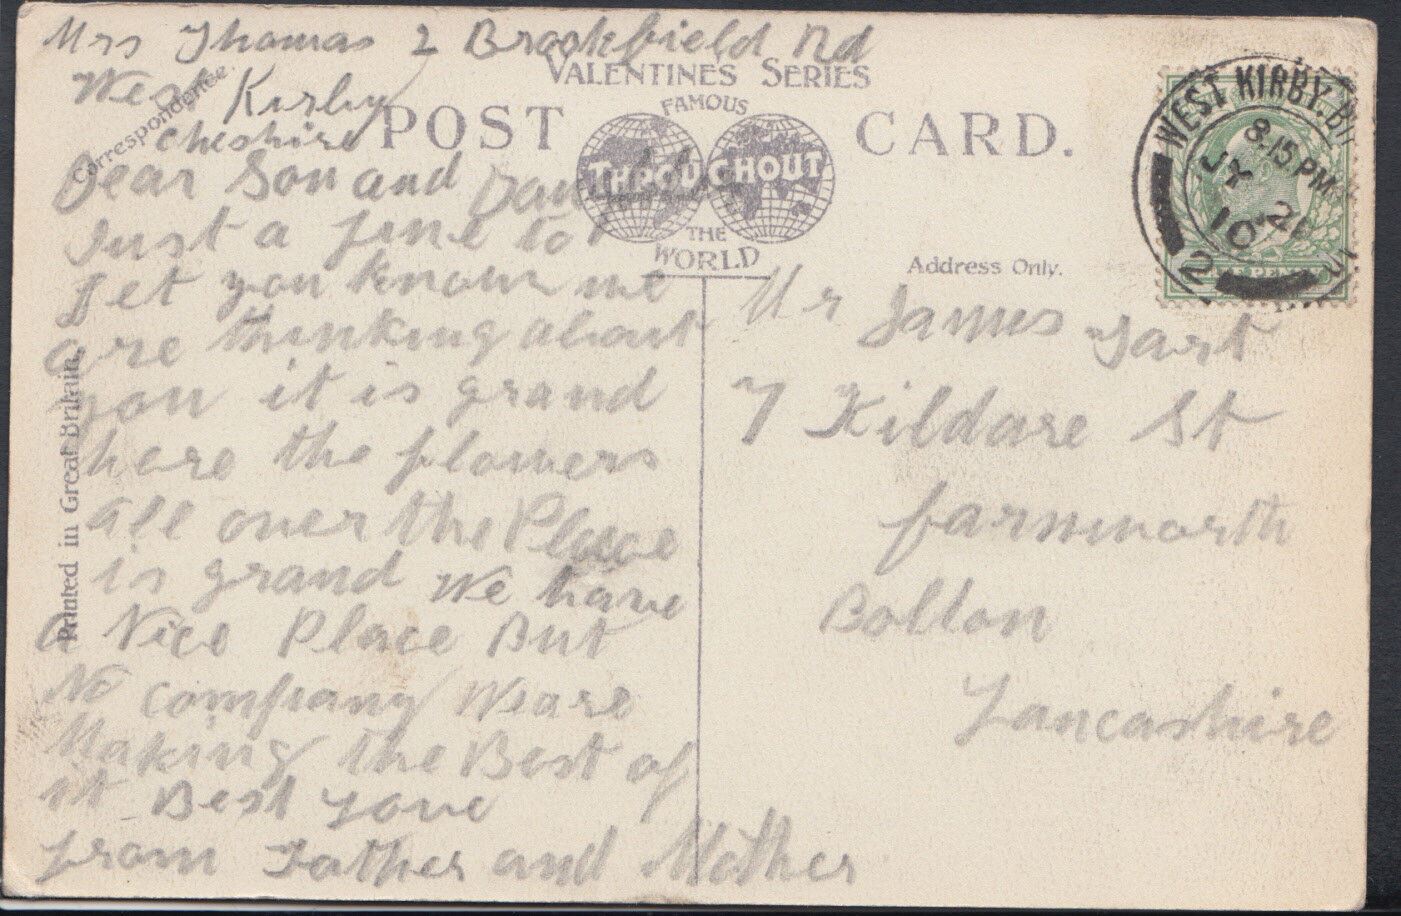 Mrs Thomas 2 Brookfield Rd
West Kirby
Cheshire
Dear Son and
Just a line to
let you know we
are thinking about
you it is grand
here the flowers
all over the Place
is grand we have
a Nice Place But
No company We are
Making the Best of
it Best Love
from Father and Mother
Correspondence
Printed in Great Britain.
VALENTINES SERIES
POST CARD.
FAMOUS
THROUGHOUT
THE
WORLD
Address Only.
WEST KIRBY
8.15 PM
10
2
Mr James Tart
7 Kildare St
farnworth
Bolton
Lancashire